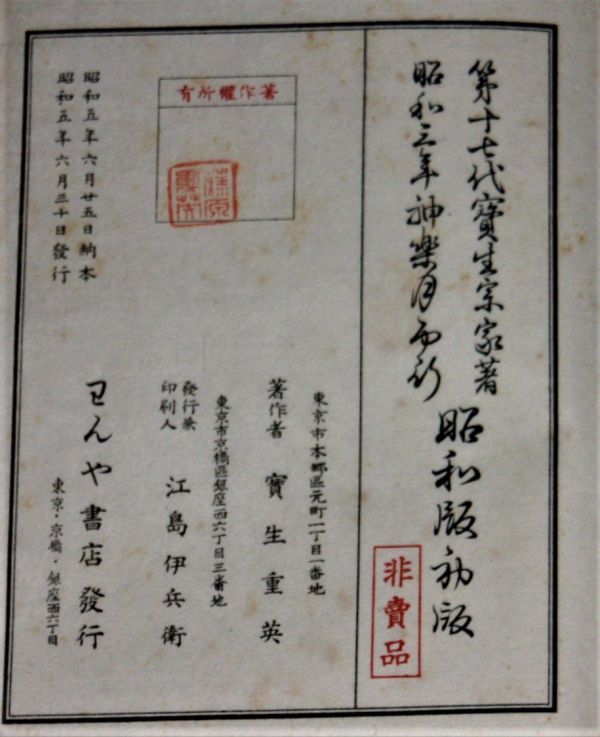 第十七代寶生宗家著
昭和三年神樂月
昭和版初版
非賣品
著作權所有
昭和五年六月廿五日納本
昭和五年六月三十日發行
東京市本郷區元町一丁目一番地
著作者 寶生重英
東京市京橋區銀座西六丁目三番地
發行兼
印刷人 江島伊兵衛
わんや書店發行
東京・京橋・銀座西六丁目